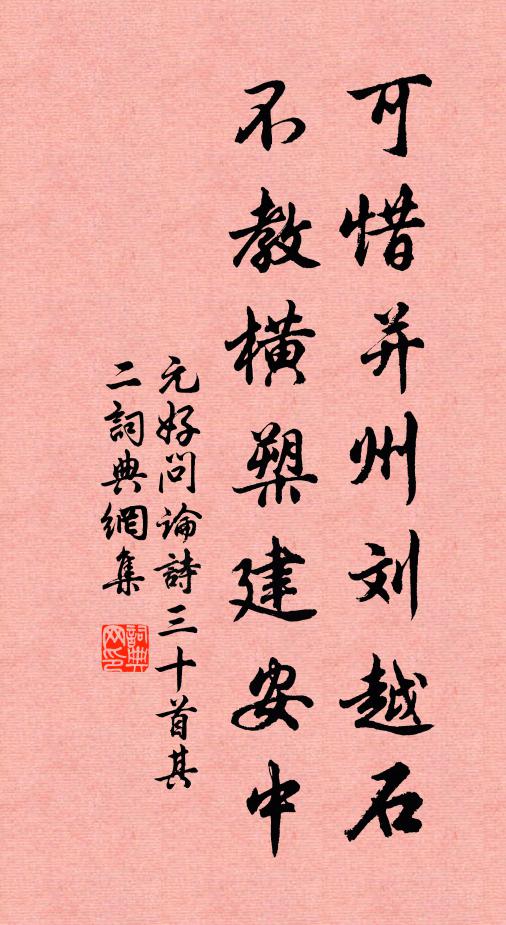 可惜并州刘越石
不教横槊建安中
元好问论詩三十首其
二詞典網集
詞典网印